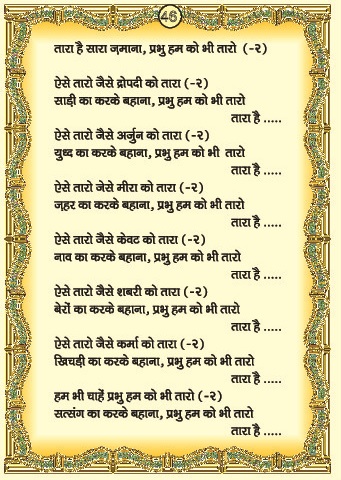 46
तारा है सारा ज़माना, प्रभु हम को भी तारो (-२)
ऐसे तारो जैसे द्रोपदी को तारा (-२)
साड़ी का करके बहाना, प्रभु हम को भी तारो
तारा है .....
ऐसे तारो जैसे अर्जुन को तारा (-२)
युध्द का करके बहाना, प्रभु हम को भी तारो
तारा है .....
ऐसे तारो जेसे मीरा को तारा (-२)
ज़हर का करके बहाना, प्रभु हम को भी तारो
तारा है .....
ऐसे तारो जैसे केवट को तारा (-२)
नाव का करके बहाना, प्रभु हम को भी तारो
तारा है .....
ऐसे तारो जैसे शबरी को तारा (-२)
बेरों का करके बहाना, प्रभु हम को भी तारो
तारा है .....
ऐसे तारो जैसे कर्मा को तारा (-२)
खिचड़ी का करके बहाना, प्रभु हम को भी तारो
तारा है .....
हम भी चाहें प्रभु हम को भी तारो (-२)
सत्संग का करके बहाना, प्रभु हम को भी तारो
तारा है .....